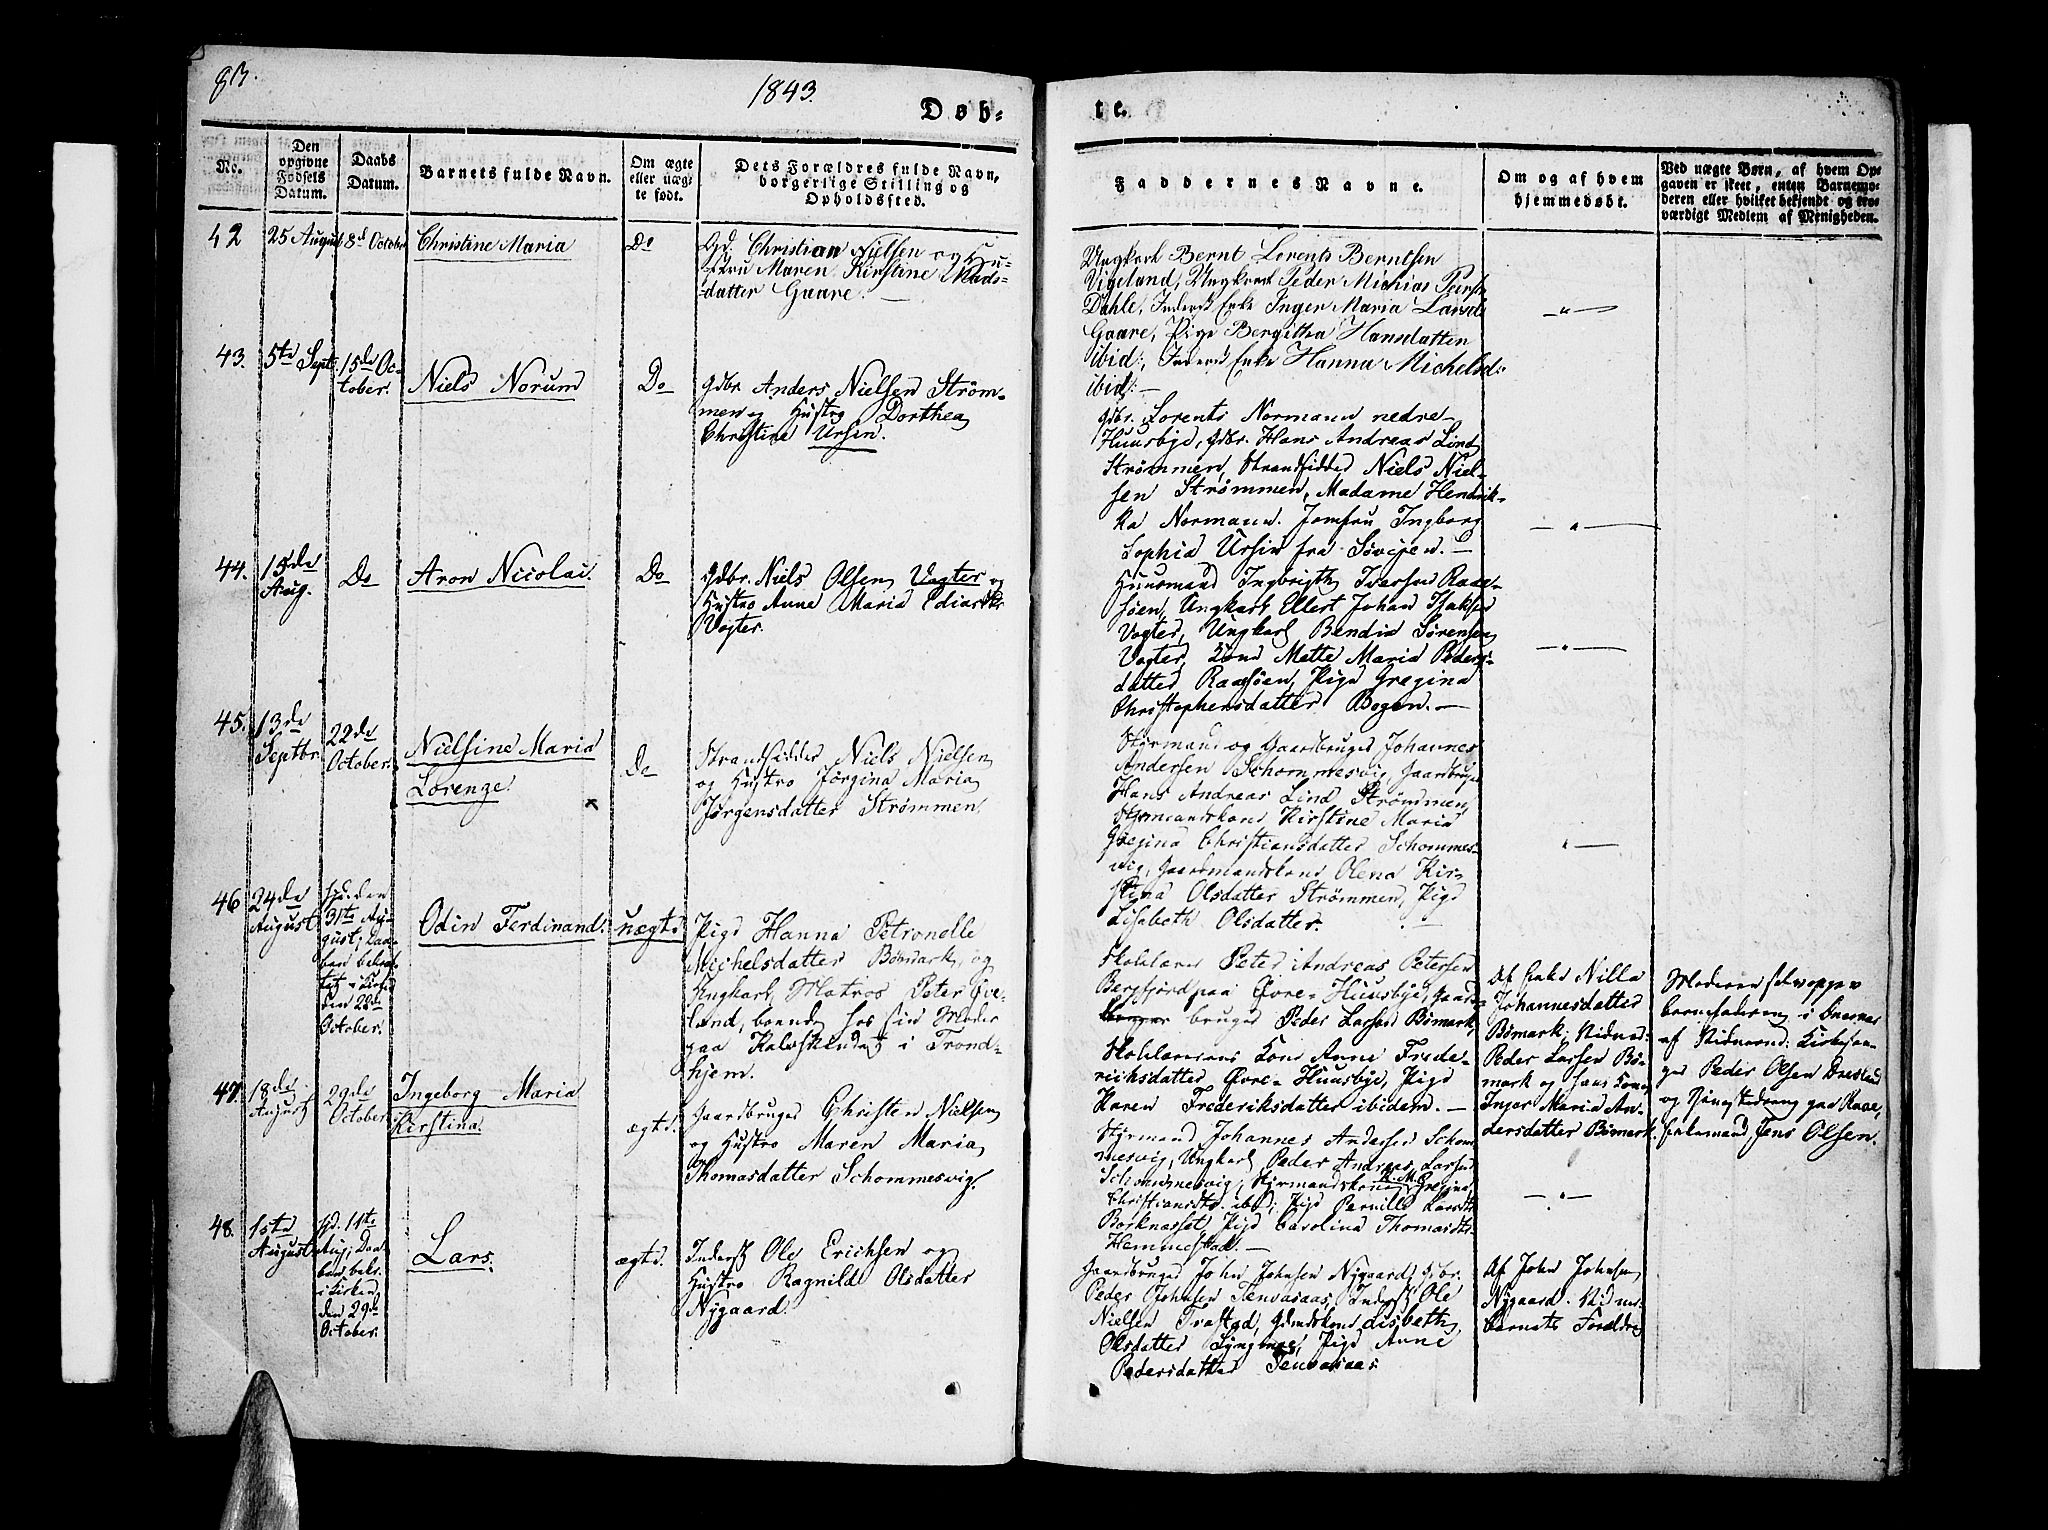 1843.
Døb-
te.
No.
Den
opgivne
Fødsels
Datum.
Daabs
Datum.
Barnets fulde Navn.
Om ægte
eller uæg-
te født.
Dets Forældres fulde Navn,
borgerlige Stilling og
Opholdssted.
Faddernes Navne.
Om og af hvem
hjemmedøbt.
Ved uægte Børn, af hvem Op-
gaven er skeet, enten Barnemo-
deren eller hvilket bekjendt og tro-
værdigt Medlem af Menigheden.
42
25 August
8d October
Christine Maria
Do
Christian Nielsen og Hu-
stru Maren Kirstine Mads-
datter Gaare. —
Ungkarl Bernt Lorents Berntsen
Vigeland, Ungkarl Peder Michias
Dahle, Inderst Enke Inger Maria
Gaare, Pige Bergitha Hansdatter
ibid:, Inderst Enke Hanna Michelsd:
ibid: —
— " —
43.
5te Sept.
15de Oc-
tober.
Niels Norum
Do
Gdbr. Anders Nielsen Strøm-
men og Hustro Dorthea
Christine Ursin.
Gdbr. Lorents Normann nedre
Huusbye, Gdbr. Hans Andreas Lind
Strømmen, Strandsidder Niels Niel-
sen Strømmen, Madame Hendrik-
ka Normann. Jomfru Ingborg
Sophia Ursin fra Søvigen. —
— " —
44.
15de
Aug.
Do
Aron Nicolai.
Do
Gdbr. Niels Olsen Vagter og
Hustro Anne Maria
Vogter.
Huusmand Ingbrigth Iversen Raae-
søen, Ungkarl Ellert Johan
Vogter, Ungkarl Bendix Sørensen
Vogter, Kone Mette Maria Peders-
datter Raaesøen, Pige Gregina
Christophersdatter Bogen. —
— " —
45.
13de
Septbr.
22de
October.
Nielsine Maria
Lorenze.
Do
Strandsidder Niels Nielsen
og Hustro Jørgina Maria
Jørgensdatter Strømmen.
Styrmand og Gaardbruger Johannes
Andersen Schommesvig, Gaardbruger
Hans Andreas Lind Strømmen,
Styrmandskone Kirstine Maria
Gregina Christiansdatter Schommes-
vig, Gaardmandskone Olena Kir-
stina Olsdatter Strømmen, Pige
Lisabeth Olsdatter. —
— " —
46
24de
August
Hjd. den
31te Au-
gust; Daa-
ben bekræf-
tet i Kirken
den 22de
October.
Odin Ferdinand.
uægte
Pige Hanna Petronelle
Michelsdatter Bømark, og
Ungkarl, Matros Peter Øve-
land, boende hos sin Moder
paa Kalvskindet i Trond-
hjem.
Skolelærer Peter Andreas Petersen
Bergfjord paa Øvre-Huusbye, Gaard-
bruger Peder Larsen Bømark,
Skolelærerens Kone Anne Frede-
riksdatter Øvre-Huusbye, Pige
Karen Frederiksdatter ibidem. —
Af Enke Nilla
Johannesdatter
Bømark; Vidner:
Peder Larsen Bø-
mark og hans Kone
Inger Maria An-
dersdatter Bømark.
Moderen selv opgav
barnefaderen i Overvær
af Vidnerne: Kirkesan-
ger Peder Olsen
og paa Raae,
Jens Olsen.
47.
18de
August
29de
October
Ingeborg Maria
Kirstina.
ægte.
Gaardbruger Christen Nielsen
og Hustro Maren Maria
Thomasdatter Schommesvig.
Styrmand Johannes Andersen Schom-
mesvig, Ungkarl Peder Andreas Larsen
Schommesvig, Styrmandskone K. M. Gregina
Christiansdtr. ibid; Pige Pernille Larsdtr.
Borknesset Pige Carolina Thomasdtr.
Hemmestad. —
— " —
48.
1ste
August
Hjd. 11te
Aug; Daa-
ben bekr.
i Kirken
den 29de
October.
Lars.
ægte.
Inderst Ole Erichsen og
Hustro Ragnilde Olsdatter
Nygaard.
Gaardbruger John Johnsen Nygaard, Gdbr.
Peder Johnsen Tenvasaas, Inderst Ole
Nielsen Trastad, Gdmdskone Lisbeth
Olsdatter Lyngenes, Pige Anne
Pedersdatter Tenvasaas
Af John Johnsen
Nygaard. Vidner:
Barnets Forældre